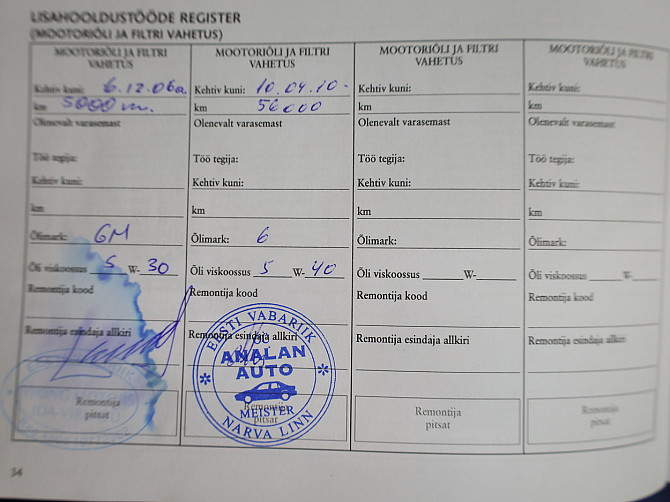 LISAHOOLDUSTÖÖDE REGISTER
(MOOTORIÕLI JA FILTRI VAHETUS)
MOOTORIÕLI JA FILTRI VAHETUS
Kehtiv kuni: 6.12.06a.
km 5000 m.
Olenevalt varasemast
Töö tegija:
Kehtiv kuni:
km
Õlimark: GM
Õli viskoossus 5 W-30
Remontija kood
Remontija esindaja allkiri
Remontija
pitsat
MOOTORIÕLI JA FILTRI VAHETUS
Kehtiv kuni: 10.04.10-
km 56000
Olenevalt varasemast
Töö tegija:
Kehtiv kuni:
km
Õlimark: 6
Õli viskoossus 5 W-40
Remontija kood
Remontija esindaja allkiri
EESTI VABARIIK
OÜ
ANALAN
AUTO
MEISTER
NARVA LINN
Remontija
pitsat
MOOTORIÕLI JA FILTRI
VAHETUS
Kehtiv kuni:
km
Olenevalt varasemast
Töö tegija:
Kehtiv kuni:
km
Õlimark:
Õli viskoossus W-
Remontija kood
Remontija esindaja allkiri
Remontija
pitsat
MOOTORIÕLI JA FILTRI
VAHETUS
Kehtiv kuni:
km
Olenevalt varasemast
Töö tegija:
Kehtiv kuni:
km
Õlimark:
Õli viskoossus W-
Remontija kood
Remontija esindaja allkiri
Remontija
pitsat
54